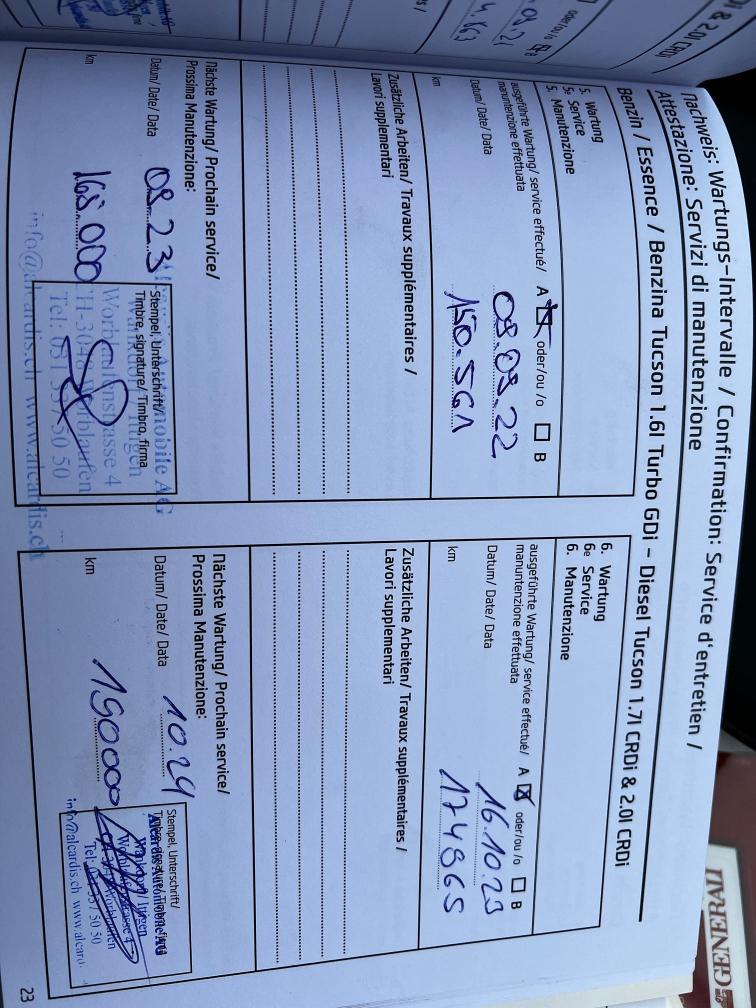 DI & 2.0l CRDi
oder/ou/o
Nachweis: Wartungs-Intervalle / Confirmation: Service d'entretien /
Attestazione: Servizi di manutenzione
Benzin / Essence / Benzina Tucson 1.6l Turbo GDi - Diesel Tucson 1.7l CRDi & 2.0l CRDi
5. Wartung
5e Service
5. Manutenzione
ausgeführte Wartung/ service effectué/ A oder/ou /o B
manuntenzione effettuata
Datum/ Date/ Data 08.09.22
km 150.561
Zusätzliche Arbeiten/ Travaux supplémentaires /
Lavori supplementari
Nächste Wartung/ Prochain service/
Prossima Manutenzione:
Datum/ Date/ Data 09.23
km 165.000
Stempel, Unterschrift/
Timbre, signature/ Timbro, firma
Automobile AG
Worblaufenstrasse 4
CH-3048 Worblaufen
Tel: 031 337 50 50
info@alcardis.ch www.alcardis.ch
6. Wartung
6e Service
6. Manutenzione
ausgeführte Wartung/ service effectué/ A oder/ou /o B
manuntenzione effettuata
Datum/ Date/ Data 16.10.23
km 174865
Zusätzliche Arbeiten/ Travaux supplémentaires /
Lavori supplementari
Nächste Wartung/ Prochain service/
Prossima Manutenzione:
Datum/ Date/ Data 10.24
km 190000
Stempel, Unterschrift/
Timbre, signature/ Timbro, firma
Alcardis Automobile AG
Tel: 031 337 50 50
info@alcardis.ch www.alcardi
23
GENERALI